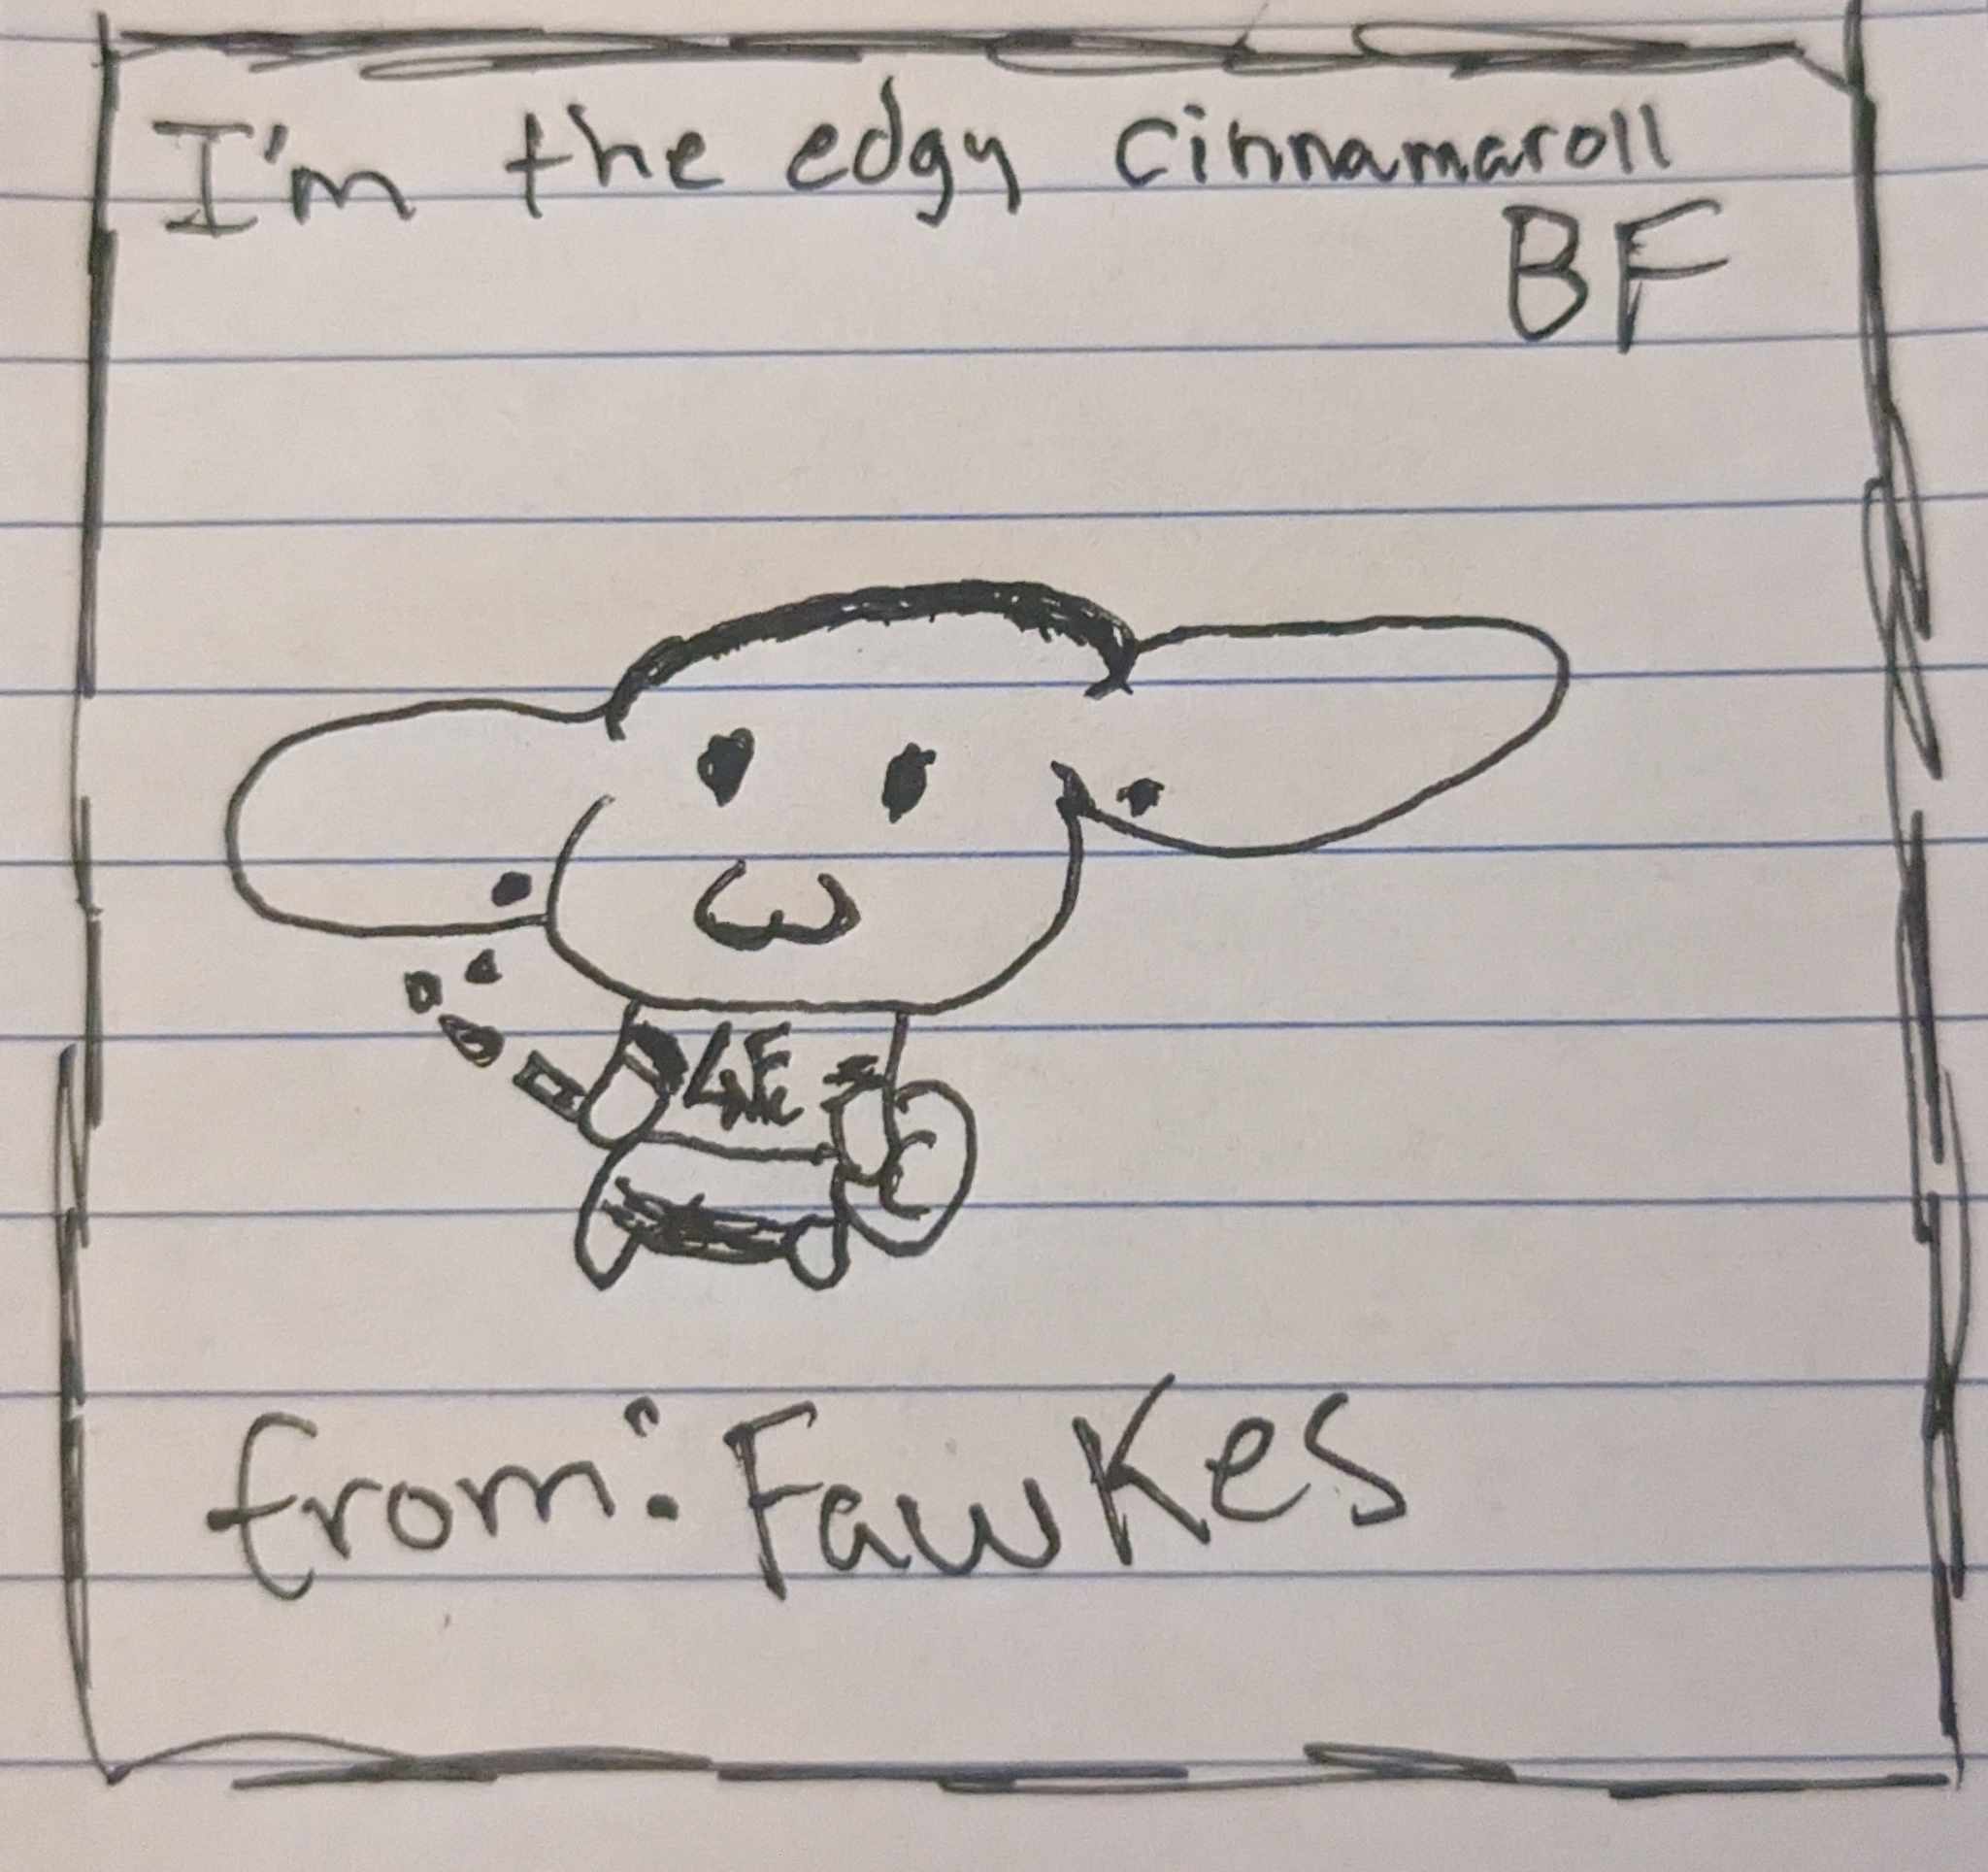 I'm the edgy cinnamaroll
BF
from: Fawkes